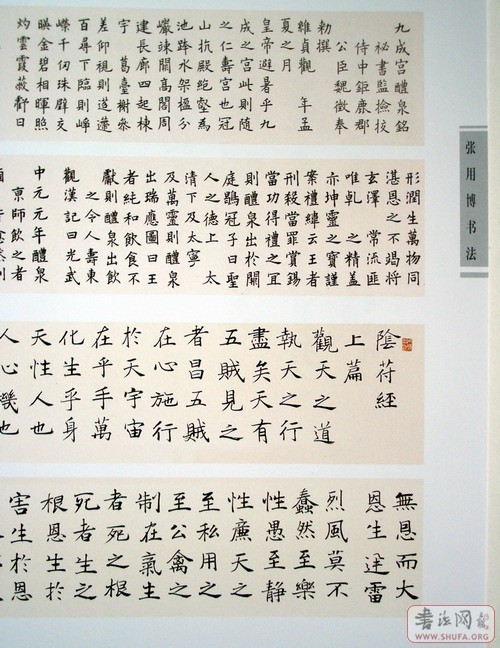 九成宮醴泉銘
祕書監撿挍
侍中鉅鹿郡
公臣魏徵奉
勑撰
維貞觀 年孟
夏之月
皇帝避暑乎九
成之宮此則随
之仁壽宮也冠
山抗殿絶壑為
池跨水架楹分
巖竦闕高閣周
建長廊四起棟
宇 葛臺榭參
差仰視則迢遰
百尋下臨則崢
嶸千仞珠壁交
暎金碧相暉照
灼雲霞蔽虧日
形潤生萬物同
湛恩之不竭将
玄澤 常流匪
唯乹 之精蓋
亦坤靈之寶謹
案禮緯云王者
刑殺當罪賞錫
當功得禮之宜
則醴泉出於闕
庭鶡冠子曰聖
人之德上 太
清下及太寧
及萬靈則醴泉
出瑞應圖曰王
者純和飲食不
獻則醴泉出飲
之令人壽東
觀漢記曰光武
中元元年醴泉
京師飲之者
陰苻經
上篇
觀天之道
執天之行
盡矣天有
五賊見之
者昌五賊
在心施行
於天宇宙
在乎手萬
化生乎身
天性人也
人心機也
無恩而大
恩生迅雷
烈風莫不
蠢然至樂
性愚至靜
性廉天之
至私用之
至公禽之
制在氣生
者死之根
死者生之
根恩生於
害生於恩
张用博书法
书法网
WWW.SHUFA.ORG